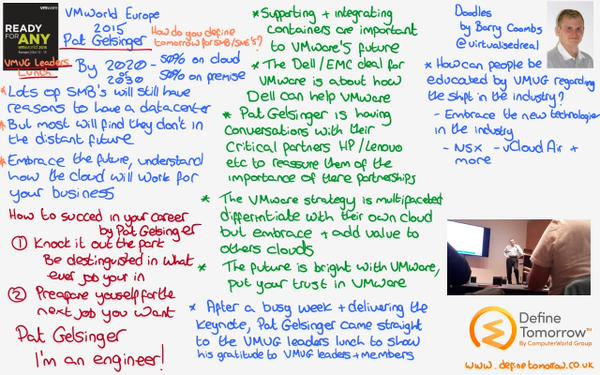 vmware
READY
FOR
ANY
VMworld Europe
2015
Pat Gelsinger
VMUG Leaders
Lunch
How do you define
tomorrow for SMB/SME's?
By 2020 - 50% on cloud
or
2030 50% on premise
* Lots of SMB's will still have
reasons to have a datacenter
* But most will find they don't in
the distant future
* Embrace the future, understand
how the cloud will work for
your business
How to succed in your career
by Pat Gelsinger
① Knock it out the park
Be destinguisted in what
ever job your in
② Preapare youself for the
next job you want
Pat Gelsinger
I'm an engineer!
* Supporting + integrating
containers are important
to VMware's future
* The Dell/EMC deal for
VMware is about how
Dell can help VMware
* Pat Gelsinger is having
conversations with their
Critical partners HP/Lenovo
etc to reassure them of the
importance of there partnerships
* The VMware strategy is multifaceted
differintiate with their own cloud
but embrace + add value to
others clouds
* The future is bright with VMware,
put your trust in VMware
* After a busy week + delivering the
keynote, Pat Gelsinger came straight
to the VMUG leaders lunch to show
his gratitude to VMUG leaders + members
Doodles
by Barry Coombs
@virtualisedreal
* How can people be
educated by VMUG regarding
the shift in the industry?
- Embrace the new technologies
in the industry
- NSX - vCloud Air +
more
Define
Tomorrow™
By ComputerWorld Group
www.definetomorrow.co.uk